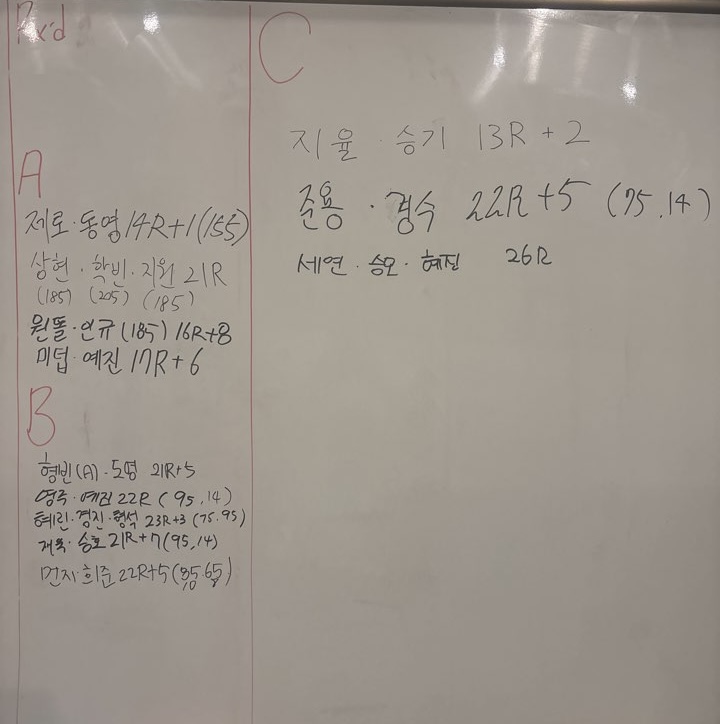 Rx'd
A
제로·동영 14R+1(155)
상현·학빈·지원 21R
(185) (205) (185)
원똘·인규(185) 16R+8
미텁·예진 17R+6
B
형빈(A)·도영 21R+5
영주·예진 22R (95,14)
혜린·경진·형석 23R+3 (75.95)
재욱·승호 21R+7(95,14)
먼지·희준 22R+5
C
지율·승기 13R+2
준용·경수 22R+5 (75,14)
세연·승모·혜진 26R